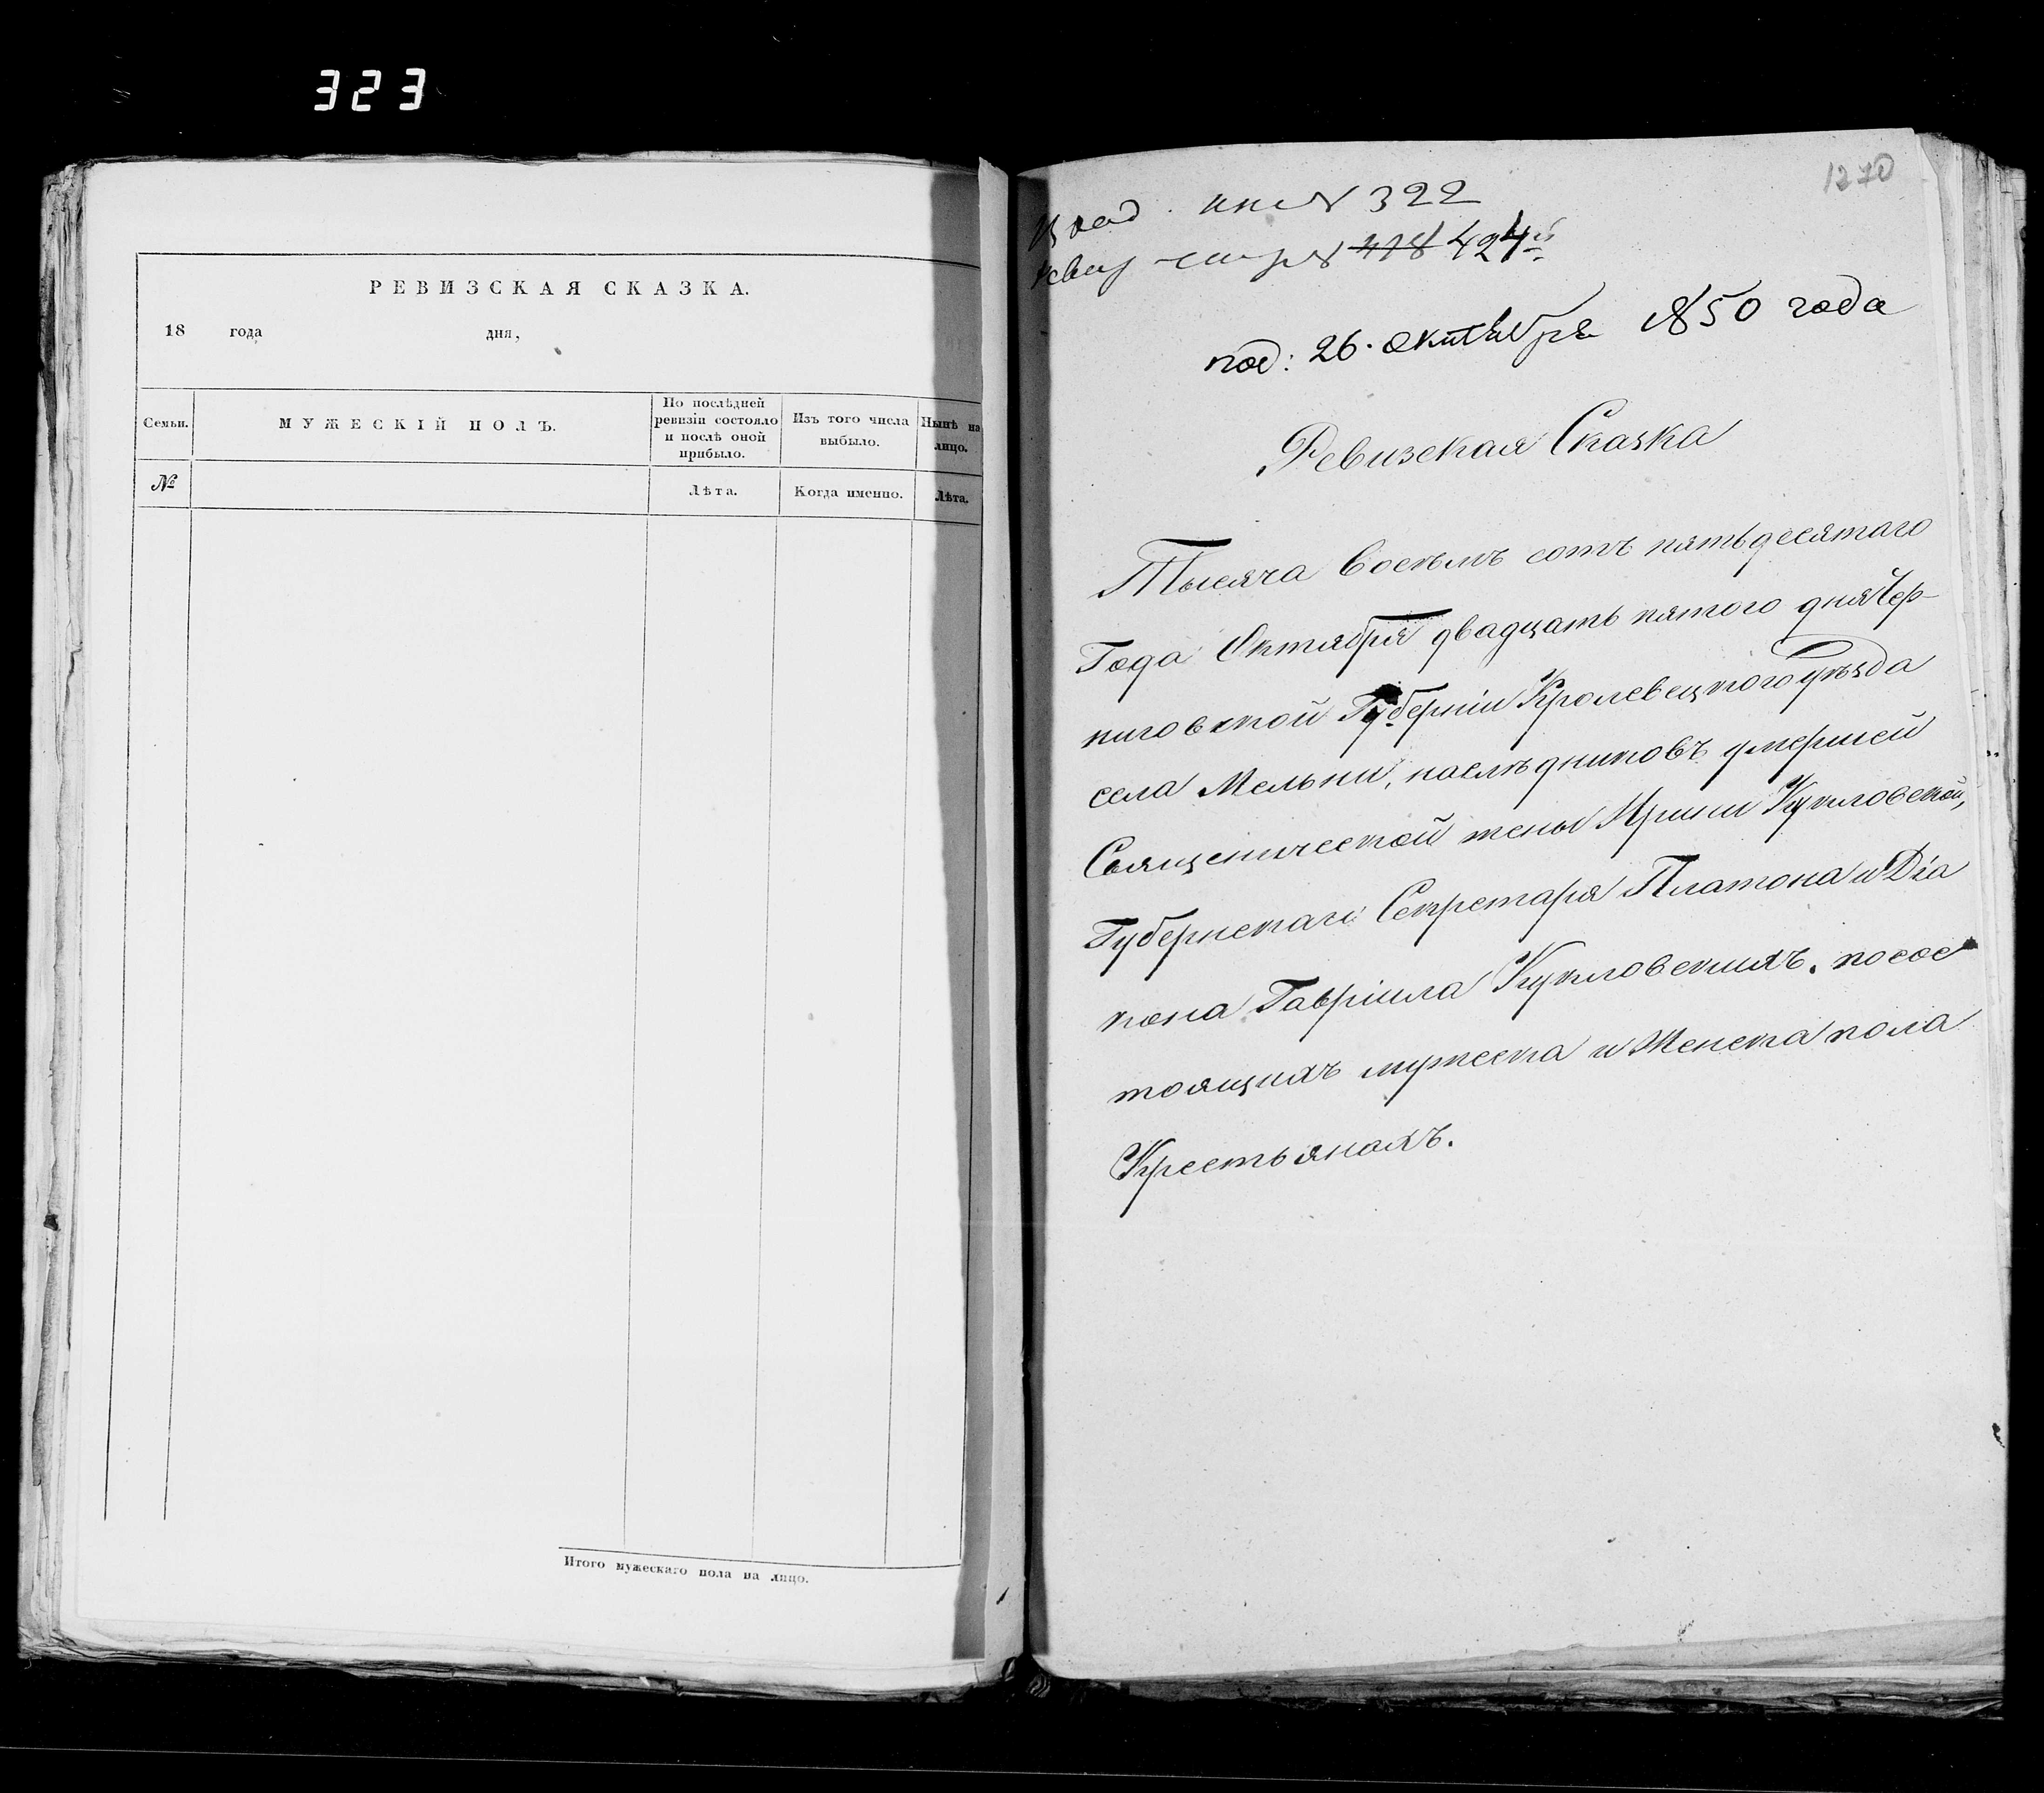 323
РЕВИЗСКАЯ СКАЗКА.
18 года дня,
Семьи.
МУЖЕСКІЙ ПОЛЪ.
По послѣдней
ревизіи состояло
и послѣ оной
прибыло.
Изъ того числа
выбыло.
Нынѣ на
лицо.
№
Лѣта.
Когда именно.
Лѣта.
Итого мужескаго пола на лицо.
1270
№ 322
418 424й
под: 26. октября 1850 года
Ревизская Сказка
Тысяча Восемъ сотъ пятьдесятаго
Года Октября двадцать пятого дня Чер-
ниговской Губерніи Кролевецкого уѣзда
села Мельни, наслѣдниковъ умершей
Священической жены Ирини Кукловской,
Губернскаго Секретаря Платона и Діа
кона Гавріила Кукловскихъ. о сос
тоящихъ мужеска и Женска пола
Крестьянахъ.